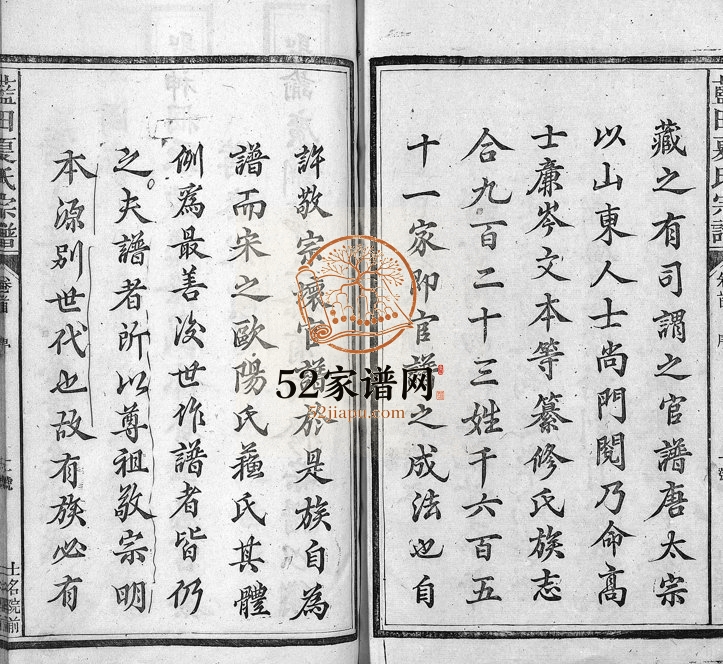 藏之有司謂之官譜唐太宗
以山東人士尚門閥乃命高
士廉岑文本等纂修氏族志
合九百二十三姓千六百五
十一家即官譜之成法也自
許敬宗壞官譜於是族自為
譜而宋之歐陽氏蘓氏其體
例爲最善後世作譜者皆仍
之夫譜者所以尊祖敬宗明
本源别世代也故有族必有
藍田夏氏宗譜
藍田夏氏宗譜
卷首
士名院前
52家谱网
52jiapu.com